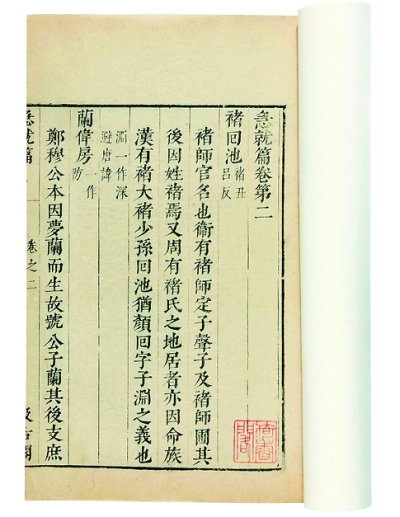 急就篇卷第二
褚回池 褚丑呂反
褚師官名也衛有褚師定子聲子及褚師圃其
後因姓褚焉又周有褚氏之地居者亦因命族
漢有褚大褚少孫回池猶顏回字子淵之義也
淵一作深
避唐諱
蘭偉房 一作防
鄭穆公本因夢蘭而生故號公子蘭其後支庶
急就篇 卷之二 汲古閣